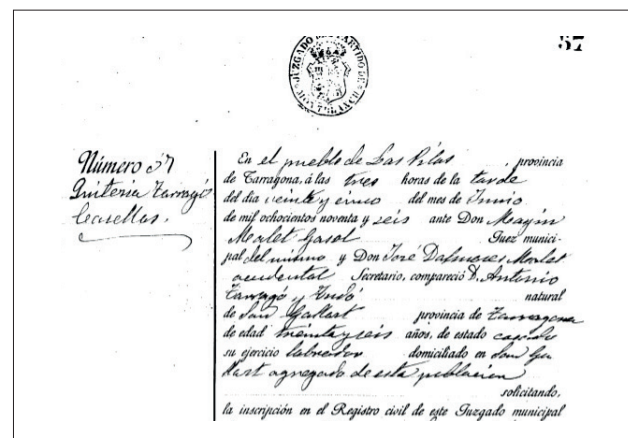 57
JUZGADO DE PARTIDO DE MONTBLANCH
Número 37
Quiteria Tarragó
Casellas.
En el pueblo de Las Pilas, provincia
de Tarragona, á las tres horas de la tarde
del dia veinte y cinco del mes de Junio
de mil ochocientos noventa y seis ante Don Magin
Morlet Gasol Juez munici-
pal del mismo y Don José Dalmases Morlet
accidental Secretario, compareció D. Antonio
Tarragó y natural
de San Gallart provincia de Tarragona
de edad treinta y seis años, de estado casado
su ejercicio labrador domiciliado en San Ga
llart agregado de esta poblacion
solicitando,
la inscripción en el Registro civil de este Juzgado municipal